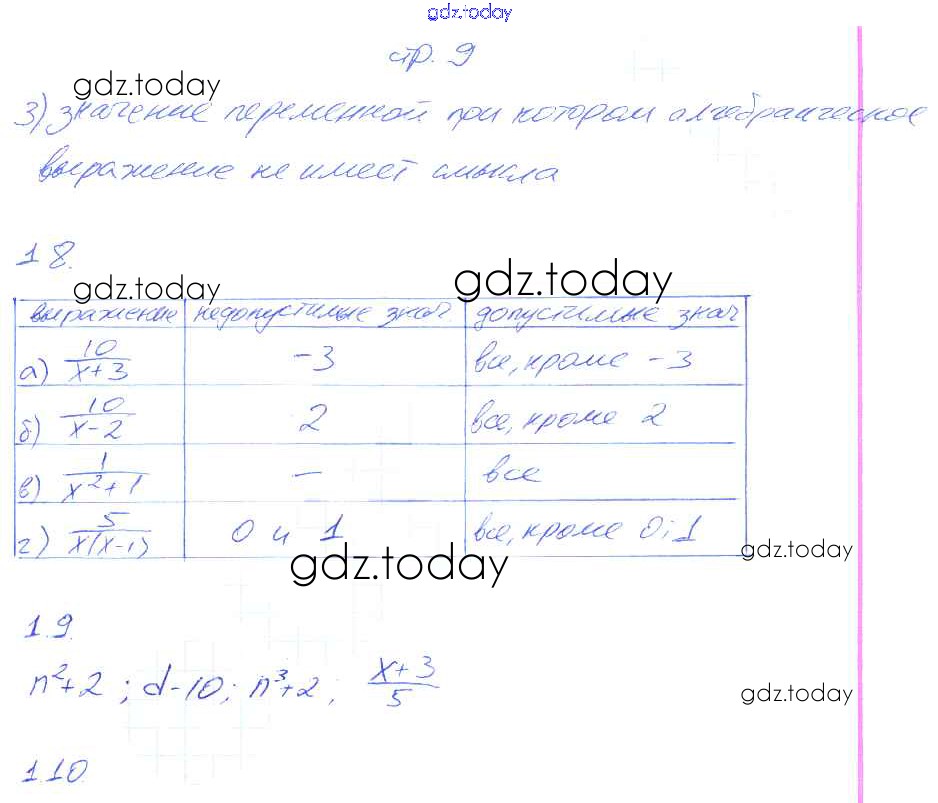 gdz.today
стр. 9
gdz.today
3) значение переменной при котором алгебраическое
выражение не имеет смысла
1.8.
gdz.today
gdz.today
выражение недопустимые знач допустимые знач
а) 10/(x+3) -3 все, кроме -3
б) 10/(x-2) 2 все, кроме 2
в) 1/(x²+1) — все
г) 5/(x(x-1)) 0 и 1 все, кроме 0; 1
gdz.today
gdz.today
1.9.
n²+2 ; d-10; n³+2 ; (x+3)/5
gdz.today
1.10.